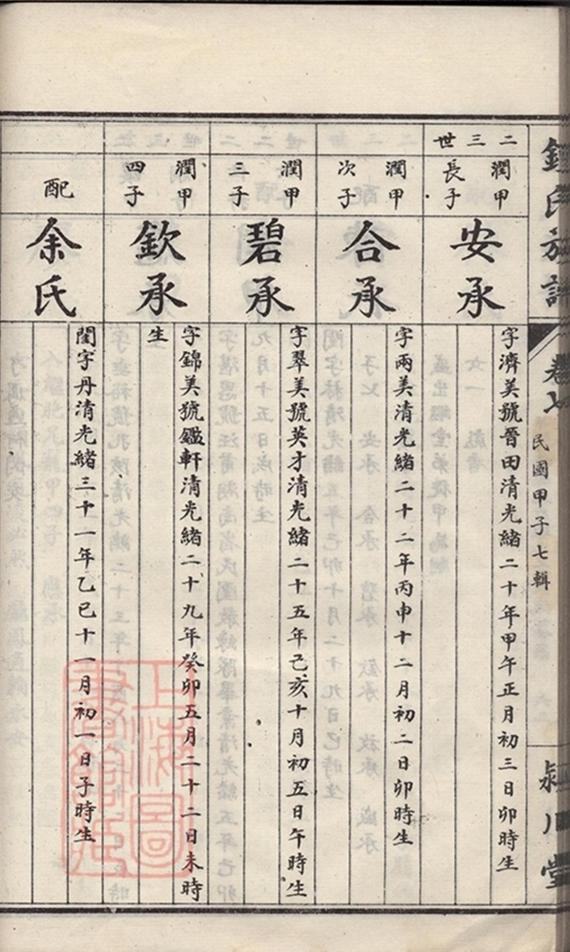 鍾氏族譜
卷七
民國甲子七輯
潁川堂
二三世
潤甲
長子
安承
字濟美號晉田清光緒二十年甲午正月初三日卯時生
潤甲
次子
合承
字兩美清光緒二十二年丙申十二月初二日卯時生
潤甲
三子
碧承
字翠美號英才清光緒二十五年己亥十月初五日午時生
潤甲
四子
欽承
字錦美號鑑軒清光緒二十九年癸卯五月二十二日未時
生
配
余氏
閨字丹清光緒三十一年乙巳十一月初一日子時生
上海圖
書館藏